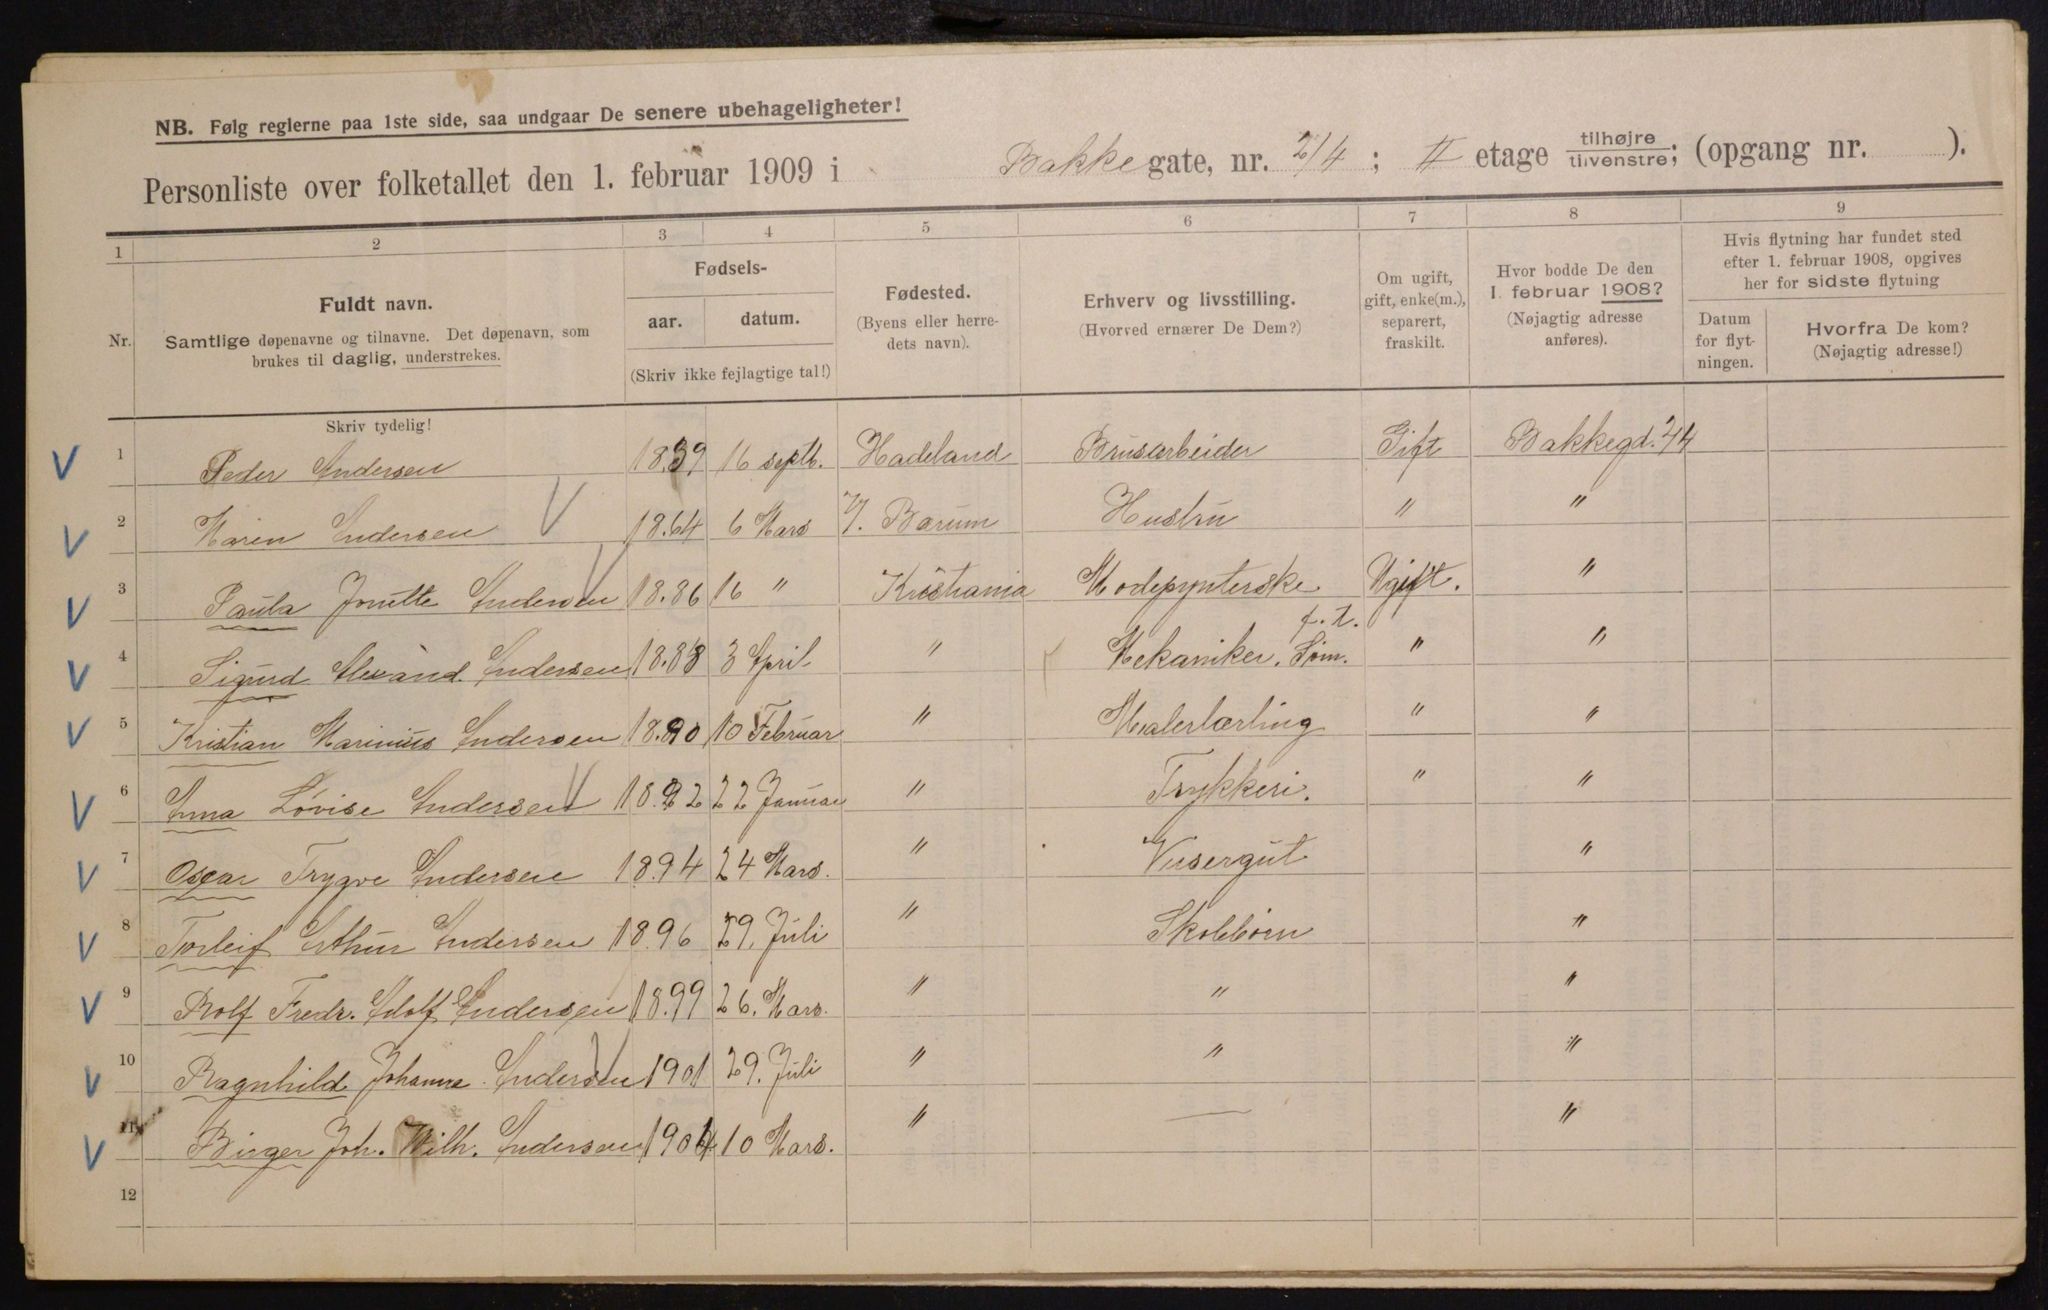 NB. Følg reglerne paa 1ste side, saa undgaar De senere ubehageligheter!
Personliste over folketallet den 1. februar 1909 i Bakke gate, nr. 2/4; II etage tilhøjre/tilvenstre; (opgang nr. ).
1 2 3 4 5 6 7 8 9
Nr.
Fuldt navn.
Samtlige døpenavne og tilnavne. Det døpenavn, som
brukes til daglig, understrekes.
Skriv tydelig!
Fødsels-
aar. datum.
(Skriv ikke fejlagtige tal!)
Fødested.
(Byens eller herre-
dets navn).
Erhverv og livsstilling.
(Hvorved ernærer De Dem?)
Om ugift,
gift, enke(m.),
separert,
fraskilt.
Hvor bodde De den
1. februar 1908?
(Nøjagtig adresse
anføres).
Hvis flytning har fundet sted
efter 1. februar 1908, opgives
her for sidste flytning
Datum
for flyt-
ningen.
Hvorfra De kom?
(Nøjagtig adresse!)
1 Peder Andersen 1839 16 septb. Hadeland Brusarbeider Gift Bakkegd. 24
2 Karen Andersen 1864 6 Mars V. Barum Hustru " "
3 Paula Andersen 1886 16 " Kristiania Modepynterske Ugift. "
4 Sigurd Alexand. Andersen 1888 3 April " Mekaniker. f.t. Søm. " "
5 Kristian Marinius Andersen 1890 10 Februar " Malerlærling " "
6 Anna Lovise Andersen 1892 22 Januar " Trykkeri. " "
7 Oscar Trygve Andersen 1894 24 Mars. " Visergut "
8 Torleif Arthur Andersen 1896 29. Juli " Skolebørn "
9 Rolf Fredr. Adolf Andersen 1899 26. Mars. " " "
10 Ragnhild Johanne Andersen 1901 29. Juli " " "
11 Birger Joh. Wilh. Andersen 1904 10 Mars. " — "
12